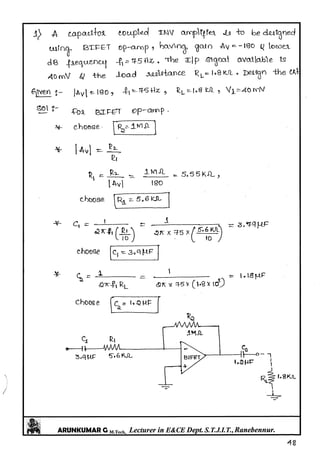 1) A Capacitor Coupled INV amplifier is to be designed
using BIFET op-amp, having gain Av = -180 & lower
dB frequency f1 = 75 Hz, The I/p Signal available is
40 mV & the load resistance RL = 1.8 KΩ. Design the Ckt
Given :- |Av| = 180, f1 = 75 Hz, RL = 1.8 KΩ, V1 = 40 mV
Sol :- FOR BIFET op-amp.
* choose R2 = 1 MΩ
* |Av| = R2 / R1
R1 = R2 / |Av| = 1 MΩ / 180 = 5.55 KΩ,
choose R1 = 5.6 KΩ
* C1 = 1 / 2π f1 (R1 / 10) = 1 / 2π x 75 x (5.6 KΩ / 10) = 3.79 μF
choose C1 = 3.9 μF
* C2 = 1 / 2π f1 RL = 1 / 2π x 75 x (1.8 x 10³) = 1.18 μF
Choose C2 = 1.2 μF
R2
1MΩ
C1 R1
3.9 μF 5.6 KΩ
BIFET
C2
1.2 μF
RL 1.8KΩ
ARUNKUMAR G M.Tech, Lecturer in E&CE Dept. S.T.J.I.T., Ranebennur.
48